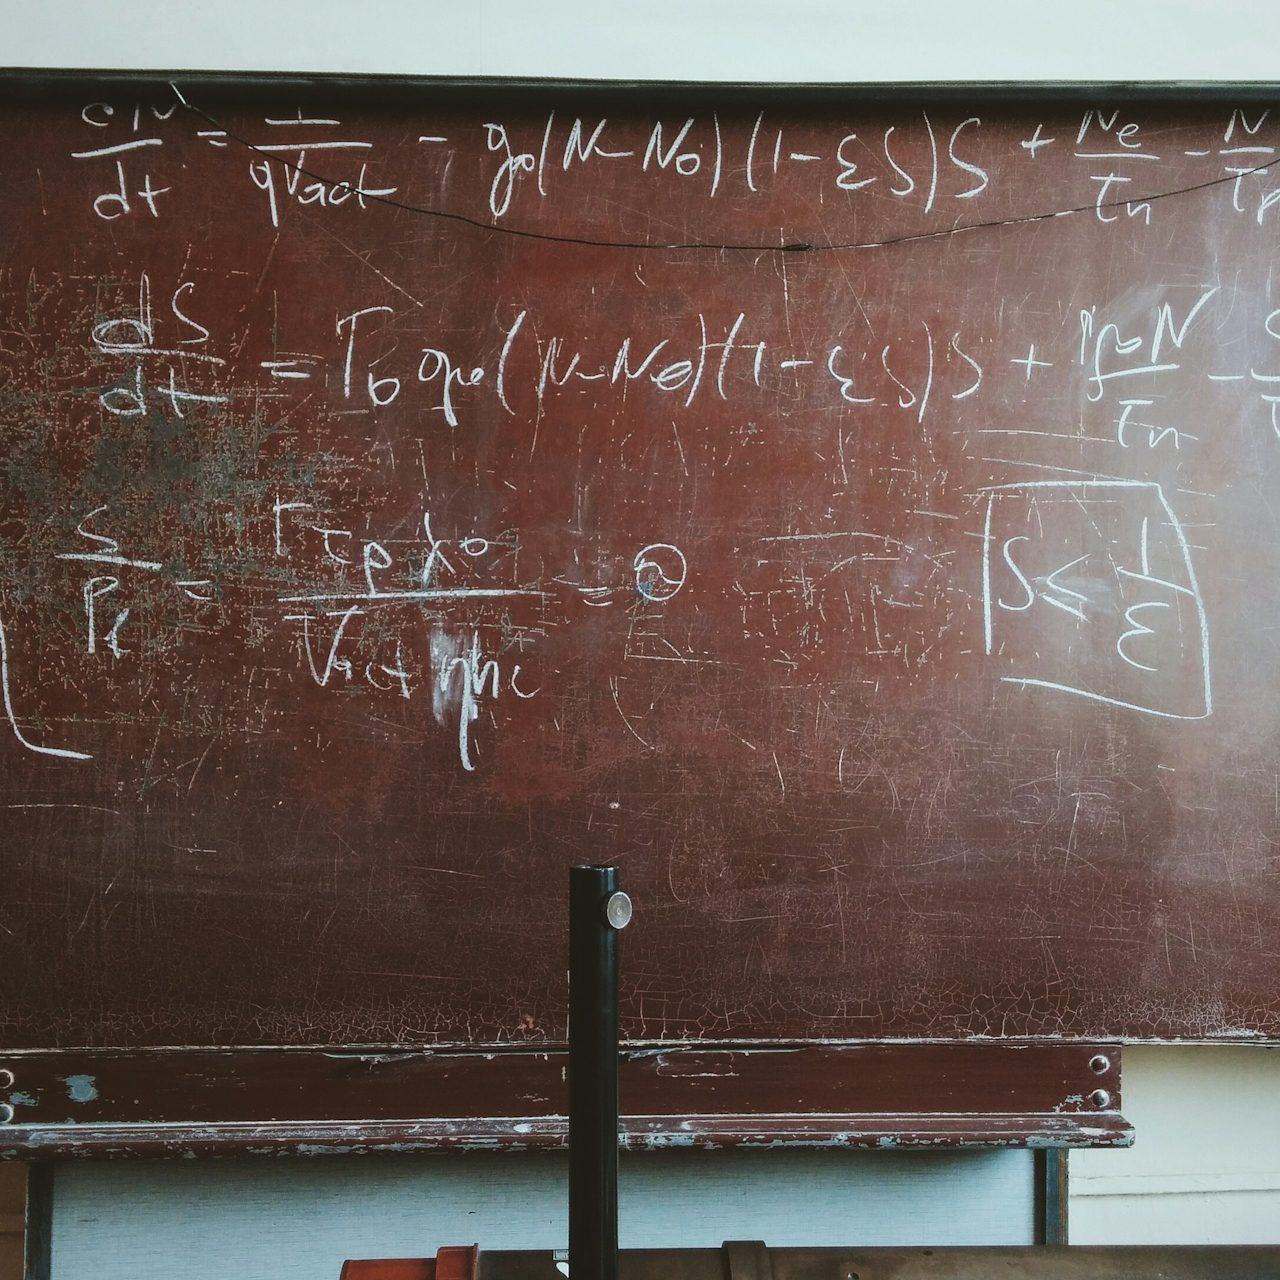 dN/dt = I/qVact - g₀(N-N₀)(1-εS)S + Ne/τn - N/τp
dS/dt = Γ₀g₀(N-N₀)(1-εS)S + N/τn -
S/Pf = Γτpλ₀/Vactηhc = ϑ
S ≤ 1/ε